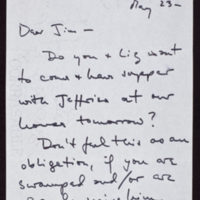 May 23 —
Dear Jim —
Do you & Liz want
to come & have supper
with Jeffries at our
house tomorrow?
Don't feel this as an
obligation, if you are
swamped and/or are